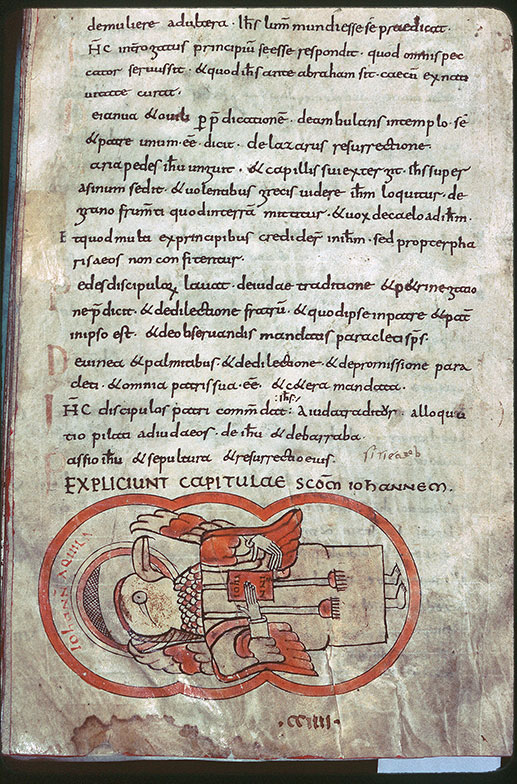 demuliere adultera · Ihs lum mundi esse se predicat ·
HC interrogatus principiu se esse respondit · quod omnis pec
cator seruus sit · & quod ihs ante abraham sit · caecu ex nati
uitate curat ·
e ianua & ouili p p dicatione · deambulans in templo · se
& patre unum ee · dicit · de lazarus resurrectione ·
aria pedes ihu unguit · & capillis sui exter git · ihs super
asinum sedit · & uolentibus grecis uidere ihm loquitur · de
grano frumti quod in terram mittitur · & uox de caelo ad ihm ·
Et quod multi ex principibus credider in ihm · sed propter pha
risaeos non confitentur ·
edes discipulor lauat · de iudae traditione & petri negatio
ne p dicit · & de dilectione fratru · & quod ipse in patre & pat
in ipso est · & de obseruandis mandatis paracleti sps ·
e uinea & palmitibus · & de dilectione · & de promissione para
cleti · & omnia patris sua ee · & cetera mandata ·
HC discipulos patri commdat : ihs A iuda traditor · alloqu
tio pilati ad iudaeos · de ihu & de barraba
assio ihu & sepultura & resurrectio eius ·
EXPLICIUNT CAPITULAE SCDM IOHANNEM ·
IOHANN AQUILA
IOH
NNIS
· CCIIII ·